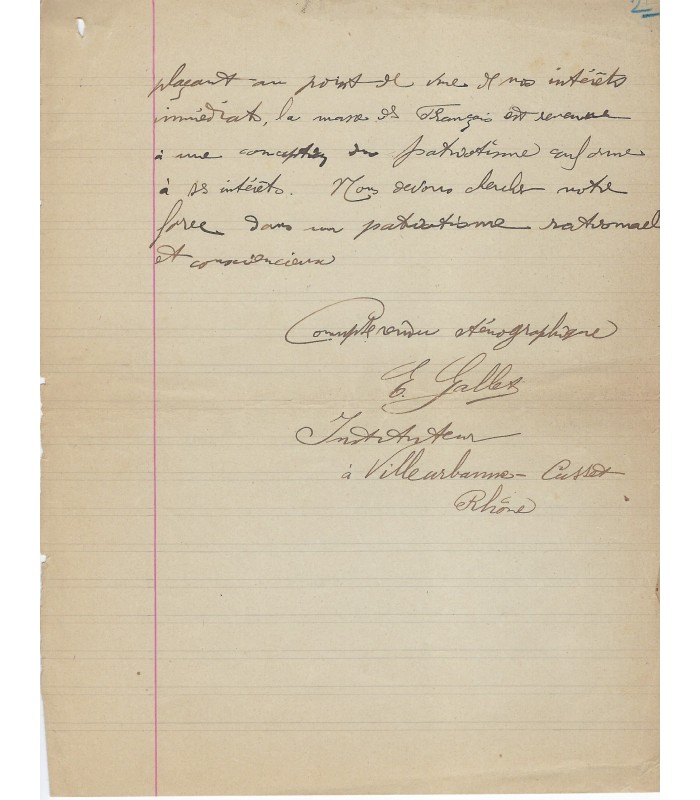 2
plaçant au point de vue de nos intérêts
immédiats, la masse des Français est revenue
à une conception du patriotisme conforme
à ses intérêts. Nous devons chercher notre
force dans un patriotisme rationnel
et consciencieux
Compte rendu sténographique
E. Gallet
Instituteur
à Villeurbanne - Cusset
Rhône